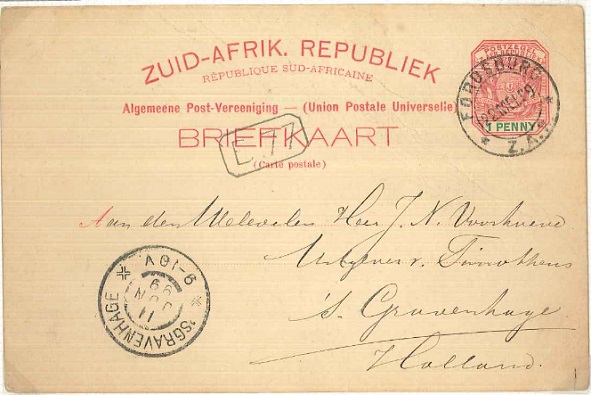 ZUID-AFRIK. REPUBLIEK
RÉPUBLIQUE SUD-AFRICAINE
Algemeene Post-Vereeniging — (Union Postale Universelle)
BRIEFKAART
(Carte postale)
POSTZEGEL
1 PENNY
FORDSBURG
Z.A.R.
Aan den Weledelen Heer J. N. Voorhoeve
Uitgever v. Timotheus
's Gravenhage
Holland.
'SGRAVENHAGE
9-10V
11
JUN
99